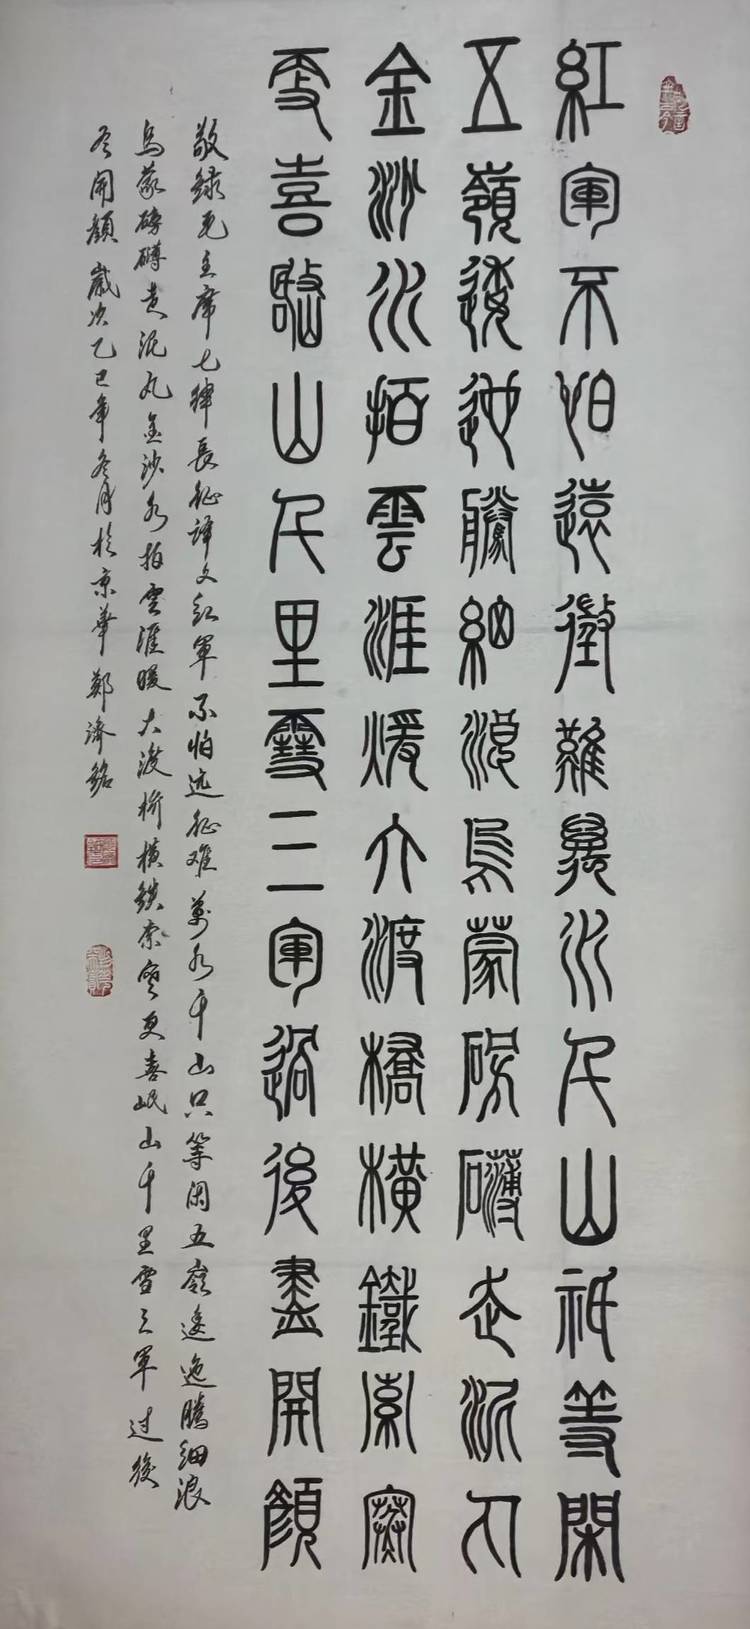 紅軍不怕遠徵難萬水千山祇等閑
五嶺逶迤騰細浪烏蒙磅礴走泥丸
金沙水拍雲涯煖大渡橋橫鐵索寒
更喜岷山千里雪三軍過後盡開顏
敬錄毛主席七律長征译文红軍不怕远征难萬水千山只等闲五嶺逶迤腾细浪
烏蒙磅礴走泥丸金沙水拍雲涯暖大渡桥横鉄索寒更喜岷山千里雪三軍过後
尽開顏歲次乙巳年冬月於京華鄭濟銘